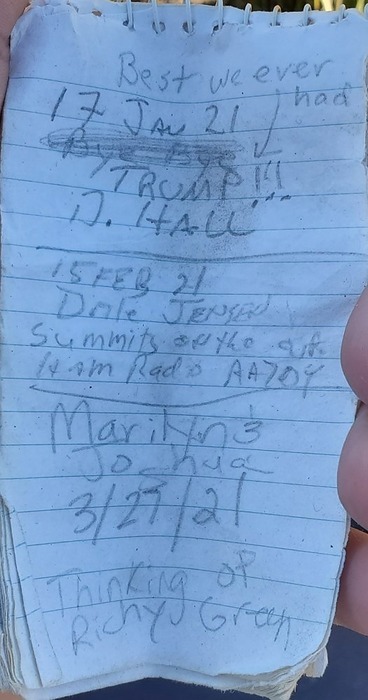 Best we ever
had
17 JAN 21
Bye Bye
TRUMP!!!
D. HALL
15 FEB 21
Dale JENSEN
Summits on the air
Ham Radio AA7OY
Marilyn &
Joshua
3/27/21
Thinking of
Richy Green